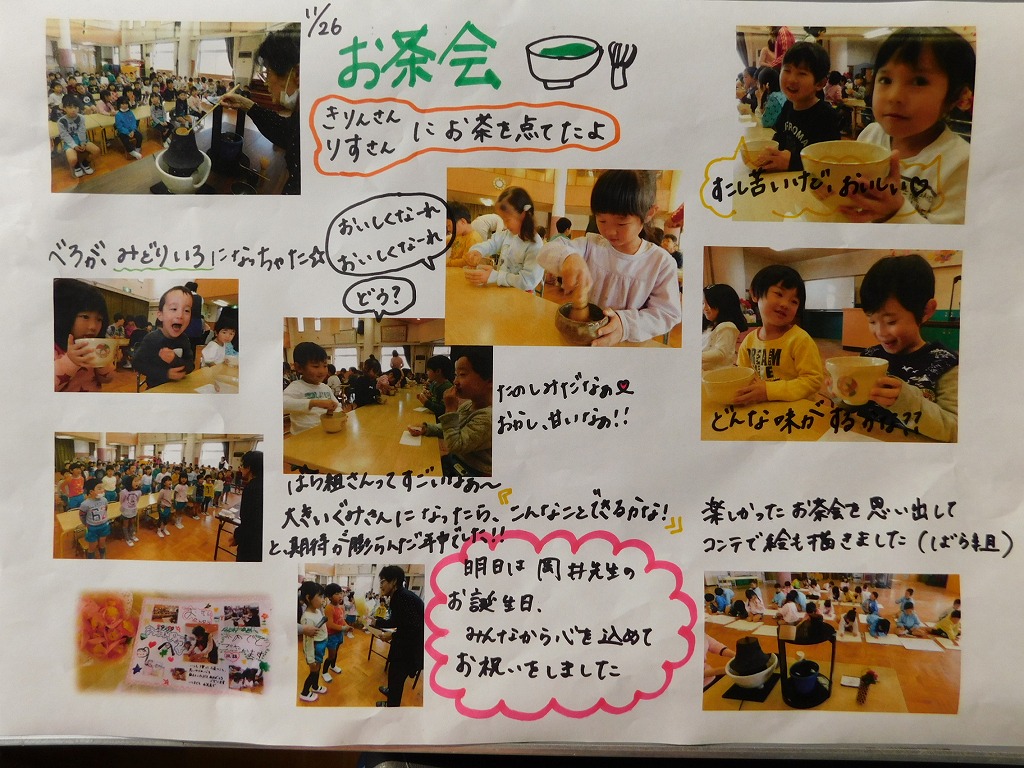 11/26
お茶会
きりんさん
りすさん
にお茶を点てたよ
すこし苦いけど、おいしい♡
おいしくなーれ
おいしくなーれ
べろが、みどりいろになっちゃた☆
どう？
たのしみだなぁ♥
おかし、甘いなぁ!!
どんな味がするかな??
ばら組さんってすごいなぁ〜
大きいぐみさんになったら、『こんなことできるかな！』
と、期待が膨らんだ年中でした!!
楽しかったお茶会を思い出して
コンテで絵も描きました（ばら組）
明日は岡井先生の
お誕生日、
みんなから心を込めて
お祝いをしました
FROMA
DREAM